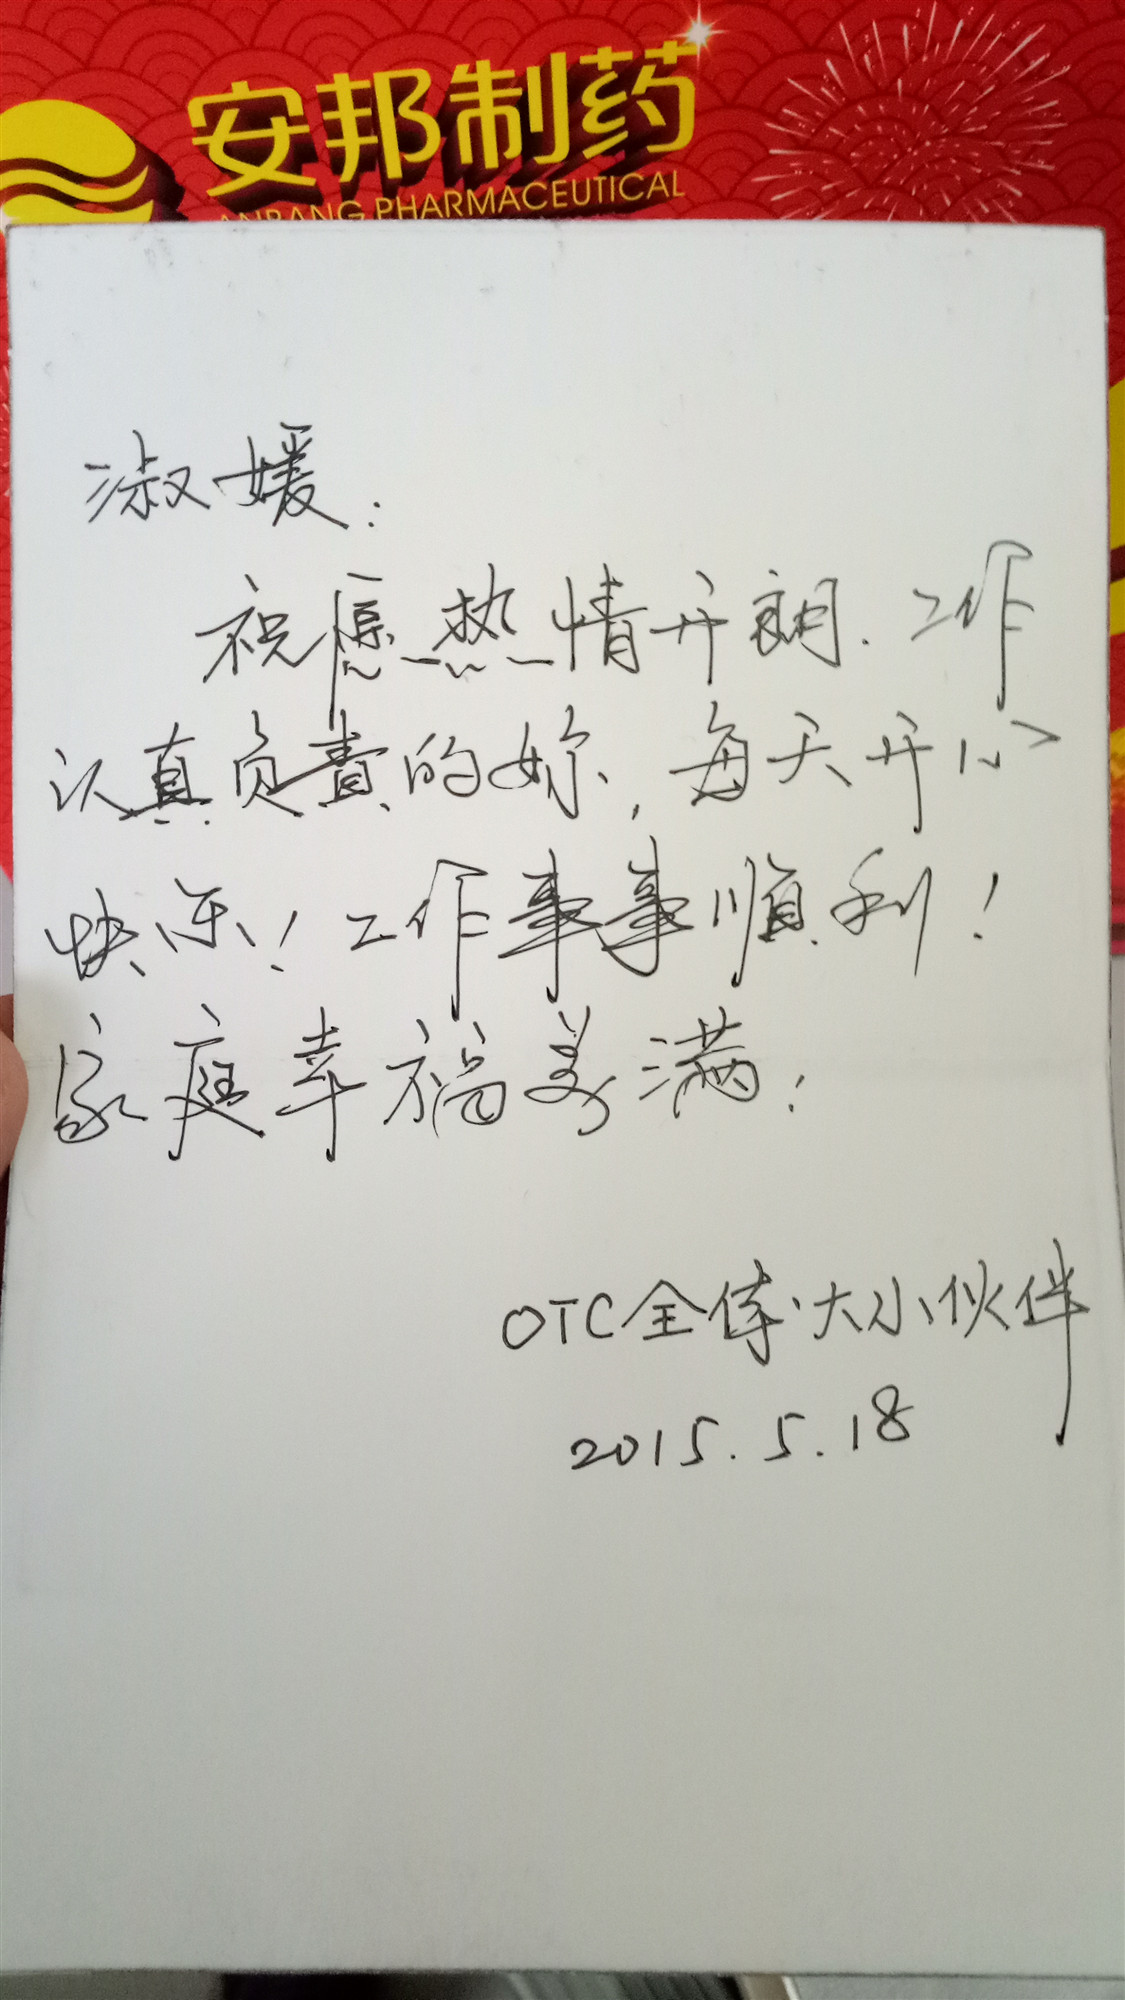 安邦制药
ANBANG PHARMACEUTICAL
淑媛:
祝愿热情开朗、工作
认真负责的妳,每天开心
快乐!工作事事顺利!
家庭幸福美满!
OTC全体大小伙伴
2015.5.18